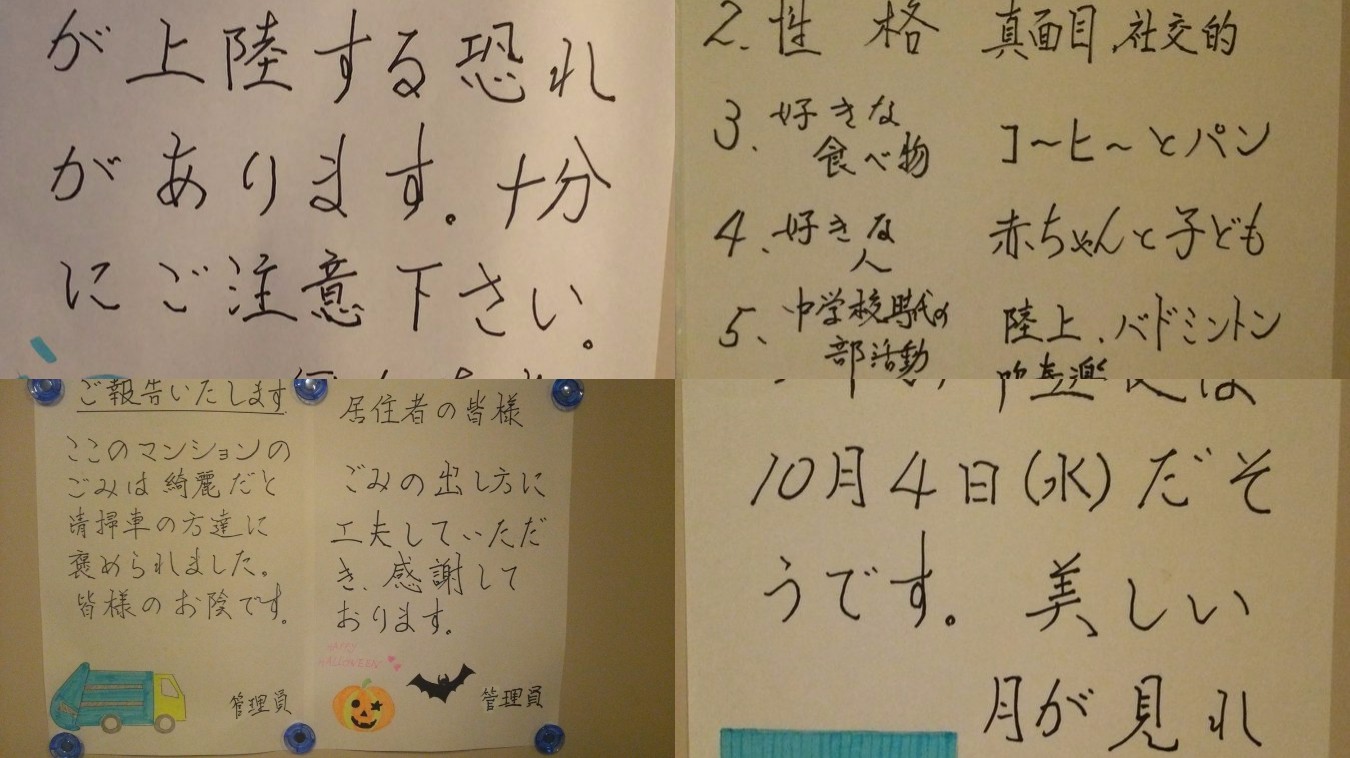 が上陸する恐れ
があります。十分
にご注意下さい。
2. 性格 真面目、社交的
3. 好きな
食べ物 コーヒーとパン
4、好きな
人 赤ちゃんと子ども
5、中学校時代の
部活動 陸上、バドミントン
吹奏楽
ご報告いたします
ここのマンションの
ごみは綺麗だと
清掃車の方達に
褒められました。
皆様のお陰です。
管理員
居住者の皆様
ごみの出し方に
工夫していただ
き、感謝して
おります。
HAPPY
HALLOWEEN
管理員
10月4日(水)だそ
うです。美しい
月が見れ